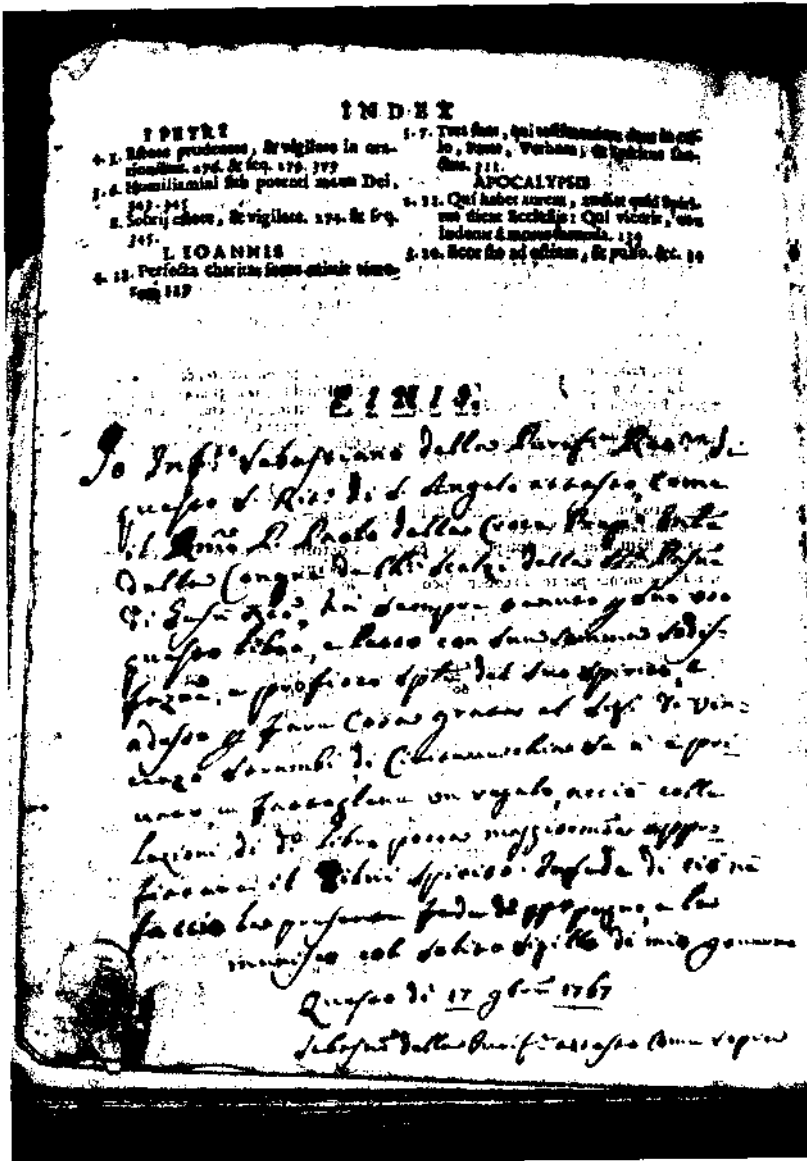 INDEX
I PETRI
4. 7. Estote prudentes, & vigilate in ora-
tionibus. 276. & seq. 279. 379
5. 6. Humiliamini sub potenti manu Dei.
343. 345
8. Sobrij estote, & vigilate. 274. & seq.
345.
I. IOANNIS
4. 18. Perfecta charitas foras mittit timo-
rem 119
5. 7. Tres sunt, qui testimonium dant in cæ-
lo, Pater, Verbum, & Spiritus San-
ctus. 311.
APOCALYPSIS
2. 11. Qui habet aurem, audiat quid Spiri-
tus dicat Ecclesiis: Qui vicerit, non
lædetur à morte secunda. 139
3. 20. Ecce sto ad ostium, & pulso. &c. 39
FINIS.
Io Inf.tto Sebastiano della Purif.ne
questo S. Rit.o di S. Angelo attesto, come
il P. Paolo della Croce Prep.
della Cong.ne de Ch. Scalzi della SS. Pass.ne
di Gesù ha sempre
questo libro, e letto con sua somma sodis-
faz.ne, e profitto del suo spirito, e
adesso p fare cosa grata al Sig. Vin-
cenzo Strambi di Civitavecchia si è pri-
vato, in un regalo, acciò colle
lezioni di d.o libro possa maggiorm.te appro-
fittare il spirito. In fede di ciò ne
faccio la presente fede di pp.o pugno, e la
munisco col solito sigillo di mio governo
Questo dì 17 9bre 1767
Sebast.no della Purif.ne attesto come sopra